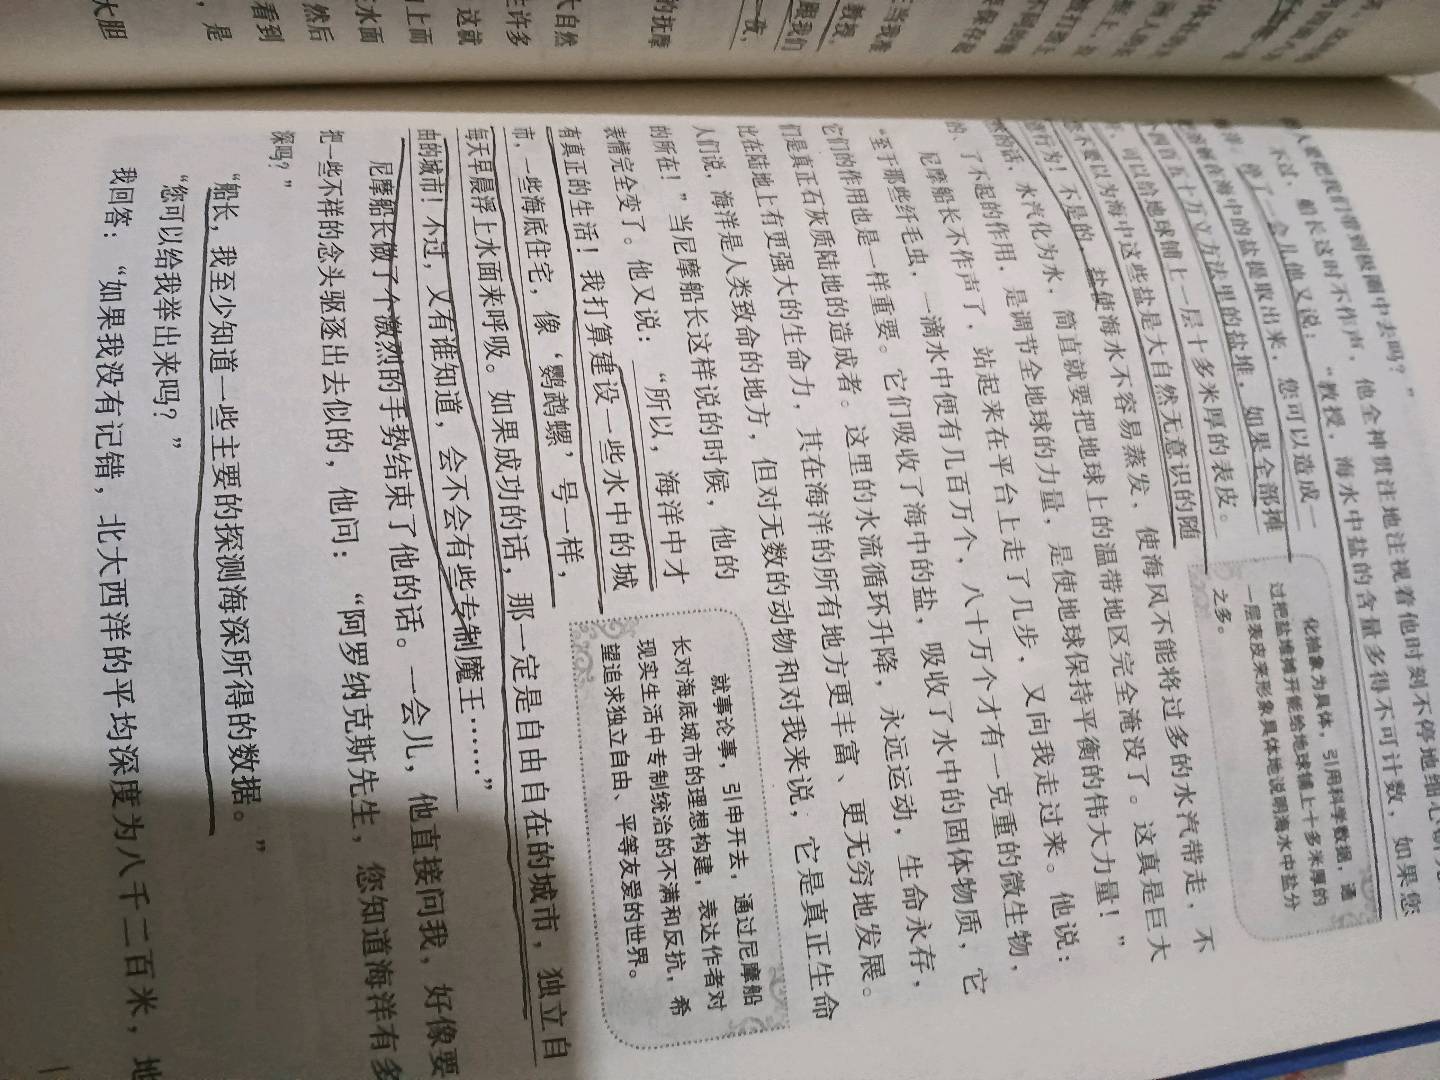 人要把我们带到极圈中去吗？”
不过，船长这时不作声，他全神贯注地注视着他时刻不停地
停了一会儿他又说：“教授，海水中盐的含量多得不可计数，如果您
把溶解在海中的盐提取出来，您可以造成一
四百五十万立方法里的盐堆，如果全部摊
可以给地球铺上一层十多米厚的表皮。
不要以为海中这些盐是大自然无意识的随
行为！不是的，盐使海水不容易蒸发，使海风不能将过多的水汽带走，不
的话，水汽化为水，简直就要把地球上的温带地区完全淹没了。这真是巨大
的、了不起的作用，是调节全地球的力量，是使地球保持平衡的伟大力量！”
尼摩船长不作声了，站起来在平台上走了几步，又向我走过来。他说：
“至于那些纤毛虫，一滴水中便有几百万个，八十万个才有一克重的微生物，
它们的作用也是一样重要。它们吸收了海中的盐，吸收了水中的固体物质，它
们是真正石灰质陆地的造成者。这里的水流循环升降，永远运动，生命永存，
比在陆地上有更强大的生命力，其在海洋的所有地方更丰富、更无穷地发展。
人们说，海洋是人类致命的地方，但对无数的动物和对我来说，它是真正生命
的所在！”当尼摩船长这样说的时候，他的
表情完全变了。他又说：“所以，海洋中才
有真正的生活！我打算建设一些水中的城
市，一些海底住宅，像‘鹦鹉螺’号一样，
每天早晨浮上水面来呼吸。如果成功的话，那一定是自由自在的城市，独立自
由的城市！不过，又有谁知道，会不会有些专制魔王……”
尼摩船长做了个激烈的手势结束了他的话。一会儿，他直接问我，好像要
把一些不祥的念头驱逐出去似的，他问：“阿罗纳克斯先生，您知道海洋有多
深吗？”
“船长，我至少知道一些主要的探测海深所得的数据。”
“您可以给我举出来吗？”
我回答：“如果我没有记错，北大西洋的平均深度为八千二百米，地
化抽象为具体，引用科学数据，通
过把盐堆摊开能给地球铺上十多米厚的
一层表皮来形象具体地说明海水中盐分
之多。
就事论事，引申开去，通过尼摩船
长对海底城市的理想构建，表达作者对
现实生活中专制统治的不满和反抗，希
望追求独立自由、平等友爱的世界。
教授，
跟我们
一夜，
的抚摩
大自然
许多
这就
上面
水面
然后
看到
，是
大胆